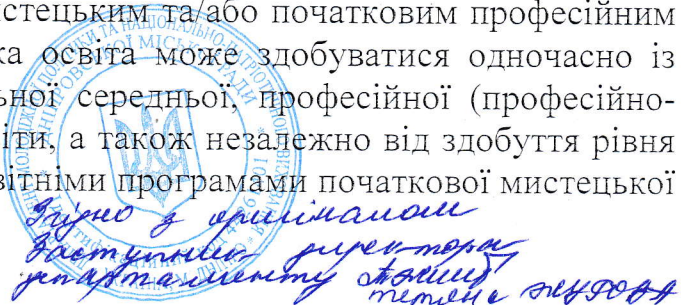 истецьким та/або початковим професійним
ка освіта може здобуватися одночасно із
льної середньої, професійної (професійно-
іти, а також незалежно від здобуття рівня
вітніми програмами початкової мистецької
Згідно з оригіналом
Заступник директора
департаменту